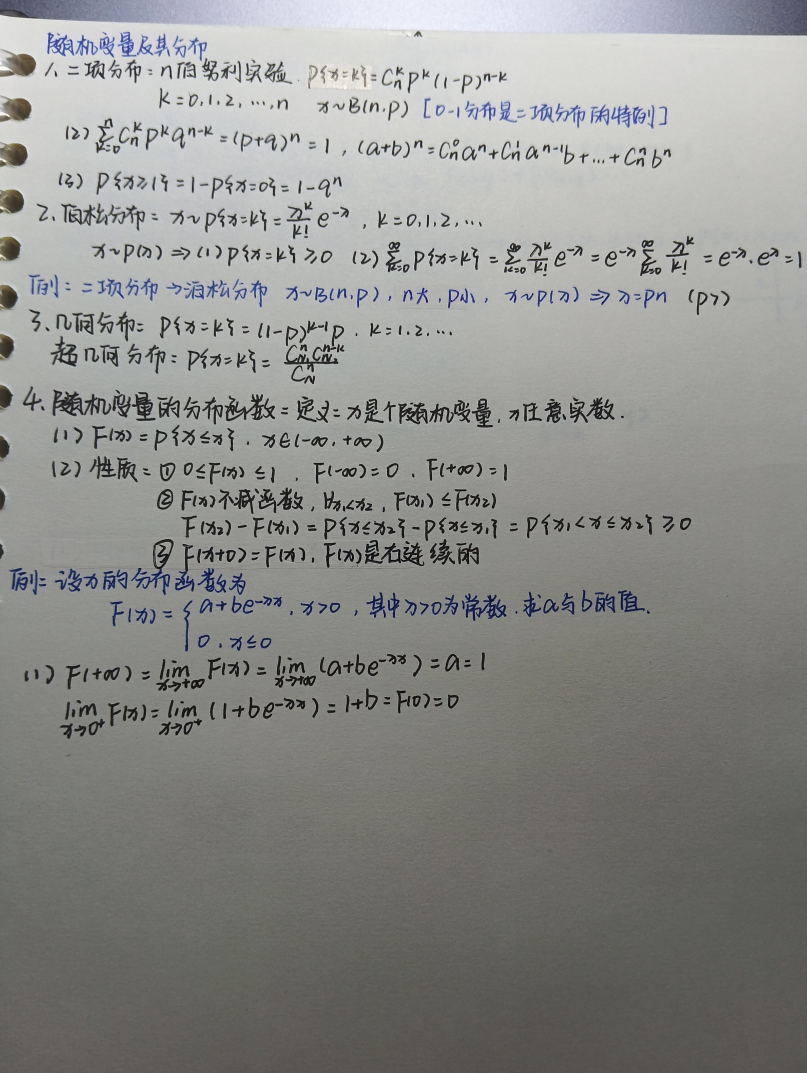 随机变量及其分布
1、二项分布:n伯努利实验. P{x=k}=C_n^k p^k (1-p)^{n-k}
k=0,1,2,…,n x~B(n,p) [0-1分布是二项分布的特例]
(2) ∑_{k=0}^{n} C_n^k p^k q^{n-k}=(p+q)^n=1, (a+b)^n=C_n^0 a^n+C_n^1 a^{n-1}b+…+C_n^n b^n
(3) P{x≥1}=1-P{x=0}=1-q^n
2、泊松分布: x~P{x=k}=λ^k/k! e^{-λ}, k=0,1,2,…
x~P(λ)⇒(1)P{x=k}≥0 (2)∑_{k=0}^{∞} P{x=k}=∑_{k=0}^{∞} λ^k/k! e^{-λ}=e^{-λ}∑_{k=0}^{∞} λ^k/k!=e^{-λ}·e^λ=1
例:二项分布→泊松分布 x~B(n,p), n大,p小, x~P(λ)⇒λ=pn (P>)
3、几何分布: P{x=k}=(1-p)^{k-1}p, k=1,2,…
超几何分布: P{x=k}=
4、随机变量的分布函数:定义:x是个随机变量,x任意实数.
(1) F(x)=P{x≤x}, x∈(-∞,+∞)
(2)性质:① 0≤F(x)≤1, F(-∞)=0, F(+∞)=1
② F(x)不减函数,∀x₁<x₂, F(x₁)≤F(x₂)
F(x₂)-F(x₁)=P{x≤x₂}-P{x≤x₁}=P{x₁<x≤x₂}≥0
③ F(x+0)=F(x), F(x)是右连续的
例:设x的分布函数为
F(x)={a+be^{-λx}, x>0, 其中λ>0为常数.求a与b的值.
0, x≤0
(1) F(+∞)=lim_{x→+∞}F(x)=lim_{x→+∞}(a+be^{-λx})=a=1
lim_{x→0⁺}F(x)=lim_{x→0⁺}(1+be^{-λx})=1+b=F(0)=0